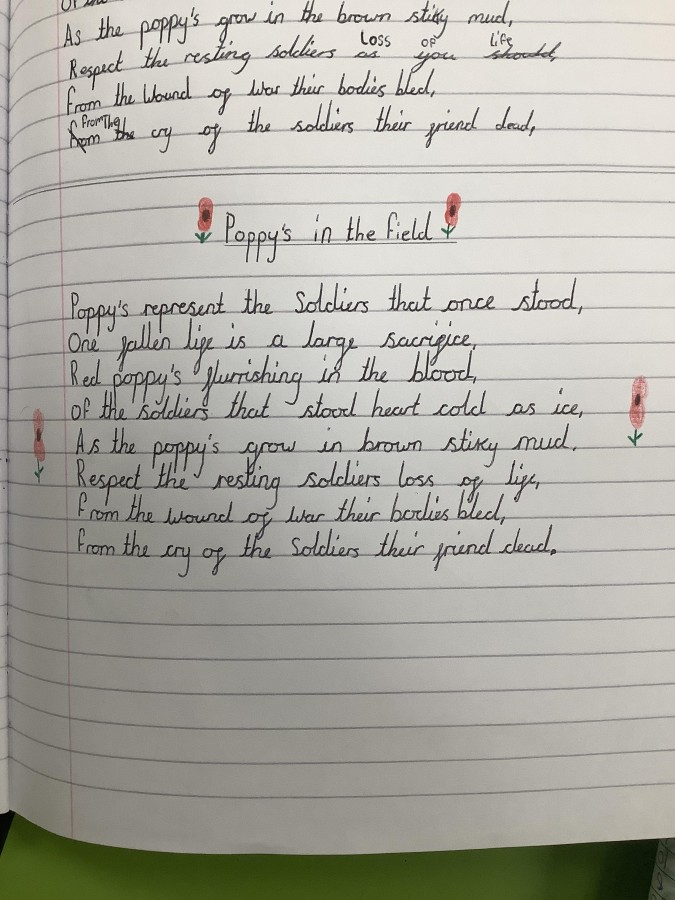 As the poppy's grow in the brown stiky mud,
Loss of Life
Respect the resting soldiers as you should,
from the Wound of War their bodies bled,
From The
from the cry of the soldiers their friend dead,
Poppy's in the field
Poppy's represent the Soldiers that once stood,
One fallen life is a large sacrifice,
Red poppy's flurrishing in the blood,
of the soldiers that stood heart cold as ice,
As the poppy's grow in brown stiky mud.
Respect the resting soldiers loss of life,
from the wound of war their bodies bled,
from the cry of the Soldiers their friend dead.